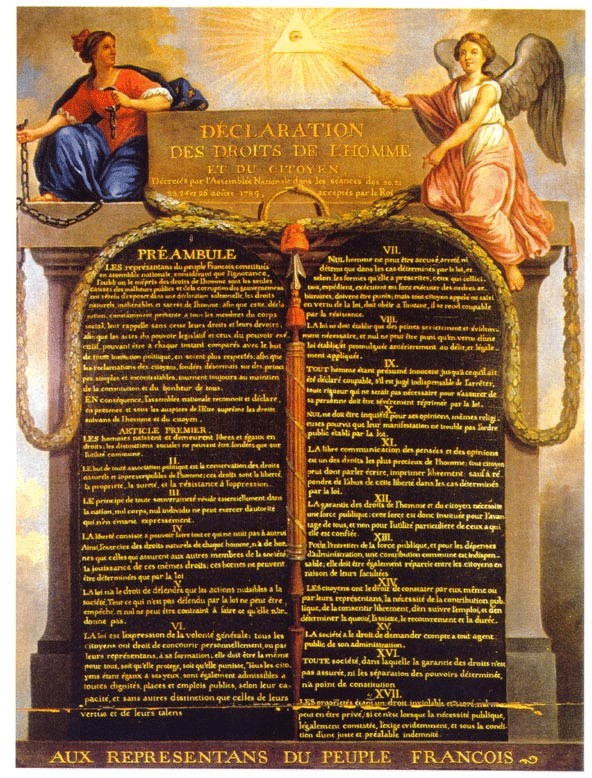 DÉCLARATION
DES DROITS DE L'HOMME
ET DU CITOYEN,
Décretés par l'Assemblée Nationale dans les séances des 20, 21
23, 24 et 26 août 1789, acceptés par le Roi
PRÉAMBULE
LES représentans du peuple François, constitués
en assemblée nationale, considérant que l'ignorance,
l'oubli ou le mépris des droits de l'homme sont les seules
causes des malheurs publics et de la corruption des gouvernemens
ont résolu d'exposer dans une déclaration solemnelle, les droits
naturels, inaliénables et sacrés de l'homme; afin que cette décla-
ration, constamment présente a tous les membres du corps
social, leur rappelle sans cesse leurs droits et leurs devoirs;
afin que les actes du pouvoir législatif et ceux du pouvoir exé-
cutif, pouvant être à chaque instant comparés avec le but
de toute institution politique, en soient plus respectés; afin que
les réclamations des citoyens, fondées désormais sur des princi-
pes simples et incontestables, tournent toujours au maintien
de la constitution et du bonheur de tous.
EN conséquence, l'assemblée nationale reconnoît et déclare,
en présence et sous les auspices de l'Etre suprême les droits
suivans de l'homme et du citoyen.
ARTICLE PREMIER.
LES hommes naissent et demeurent libres et égaux en
droits; les distinctions sociales ne peuvent être fondées que sur
l'utilité commune.
II.
LE but de toute association politique est la conservation des droits
naturels et inprescriptibles de l'homme; ces droits sont la liberté,
la propriété, la sureté, et la résistance à l'oppression.
III.
LE principe de toute souveraineté réside essentiellement dans
la nation, nul corps, nul individu ne peut exercer d'autorité
qui n'en émane expressement.
IV.
LA liberté consiste à pouvoir faire tout ce qui ne nuit pas à autrui
Ainsi, l'exercice des droits naturels de chaque homme, n'a de bor-
nes que celles qui assurent aux autres membres de la société
la jouissance de ces mêmes droits; ces bornes ne peuvent
être déterminées que par la loi
V.
LA loi n'a le droit de défendre que les actions nuisibles à la
société. Tout ce qui n'est pas défendu par la loi ne peut être
empêché, et nul ne peut être contraint à faire ce qu'elle n'or-
donne pas.
VI.
LA loi est l'expression de la volonté générale; tous les
citoyens ont droit de concourir personnellement, ou par
leurs représentans, à sa formation; elle doit être la même
pour tous, soit qu'elle protege, soit qu'elle punisse, Tous les cito-
yens étant égaux à ses yeux, sont également admissibles à
toutes dignités, places et emplois publics, selon leur ca-
pacité, et sans autres distinction que celles de leurs
vertus et de leurs talens
VII.
NUL homme ne peut être accusé, arreté, ni
détenu que dans les cas déterminés par la loi, et
selon les formes qu'elle a prescrites, ceux qui sollici-
tent, expédient, exécutent ou font exécuter des ordres ar-
bitraires, doivent être punis; mais tout citoyen appelé ou saisi
en vertu de la loi, doit obéir a l'instant, il se rend coupable
par la résistance.
VIII.
LA loi ne doit établir que des peines strictement et évidem-
ment nécessaire, et nul ne peut être puni qu'en vertu d'une
loi établie et promulguée antérierement au délit, et légale-
ment appliquée.
IX.
TOUT homme étant présumé innocent jusqu'à ce qu'il ait
été déclaré coupable, s'il est jugé indispensable de l'arrêter,
toute rigueur qui ne serait pas nécessaire pour s'assurer de
sa personne doit être sévèrement réprimée par la loi.
X.
NUL ne doit être inquiété pour ses opinions, mêmes religi-
euses pourvu que leur manifestation ne trouble pas l'ordre
public établi par la loi.
XI.
LA libre communication des pensées et des opinions
est un des droits les plus precieux de l'homme; tout citoyen
peut donc parler écrire, imprimer librement: sauf à ré-
pondre de l'abus de cette liberté dans les cas déterminés
par la loi.
XII.
LA garantie des droits de l'homme et du citoyen nécessite
une force publique; cette force est donc instituée pour l'avan-
tage de tous, et non pour l'utilité particuliere de ceux a qui
elle est confiée.
XIII.
Pour l'entretien de la force publique, et pour les dépenses
d'administration, une contribution commune est indispen-
sable; elle doit être également répartie entre les citoyens en
raison de leurs facultées
XIV.
LES citoyens ont le droit de constater par eux même ou
par leurs représentans, la nécessité de la contribution pub-
lique, de la consentir librement, d'en suivre l'emploi, et d'en
déterminer la quotité, l'assiette, le recouvrement et la durée.
XV.
LA société a le droit de demander compte a tout agent
public de son administration.
XVI.
TOUTE société, dans laquelle la garantie des droits n'est
pas assurée, ni les séparation des pouvoirs déterminée,
n'a point de constitution
XVII.
LES propriétés étant un droit inviolable et sacré, nul ne
peut en être privé, si ce n'est lorsque la nécessité publique,
légalement constatée, l'exige evidemment, et sous la condi-
tion d'une juste et préalable indemnité.
AUX REPRESENTANS DU PEUPLE FRANCOIS